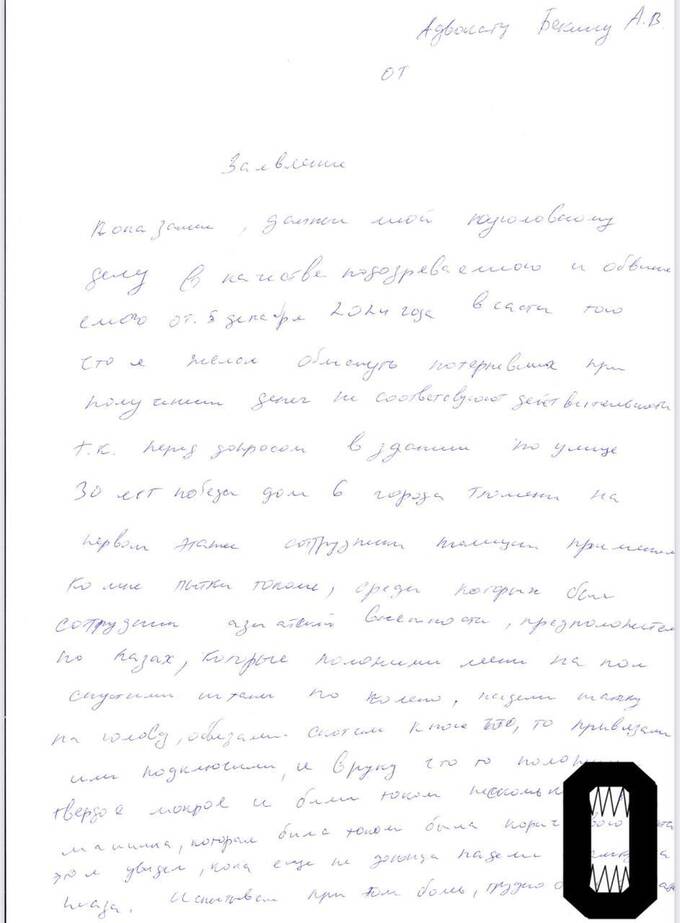 Адвокату Бекину А.В.
от
Заявление
Показание, данные мной по уголовному
делу в качестве подозреваемого и обвиня
емого от 5 декабря 2024 года в части того
что я желал обмануть потерпевших при
получении денег не соответствуют действительности
т.к. перед допросом в здании по улице
30 лет победы дом 6 города Тюмени на
первом этаже сотрудники полиции применяли
ко мне пытки током, среди которых был
сотрудник азиатской внешности, предположител
но казах, которые положили меня на пол
спустили штаны по колено, надели шапку
на голову, обвязали скотчем к ноге что, то привязали
или подключили, и в руку что то положили
твердое мокрое и били током
машинка, которая била током была
этом увидел, пока еще не надели на
глаза. Испытывал при том боль, трудно